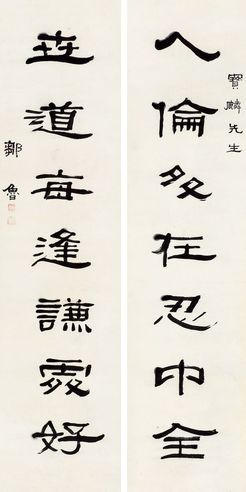 人倫多在忍中全
寶麟先生
世道每逢謙處好
鄒魯